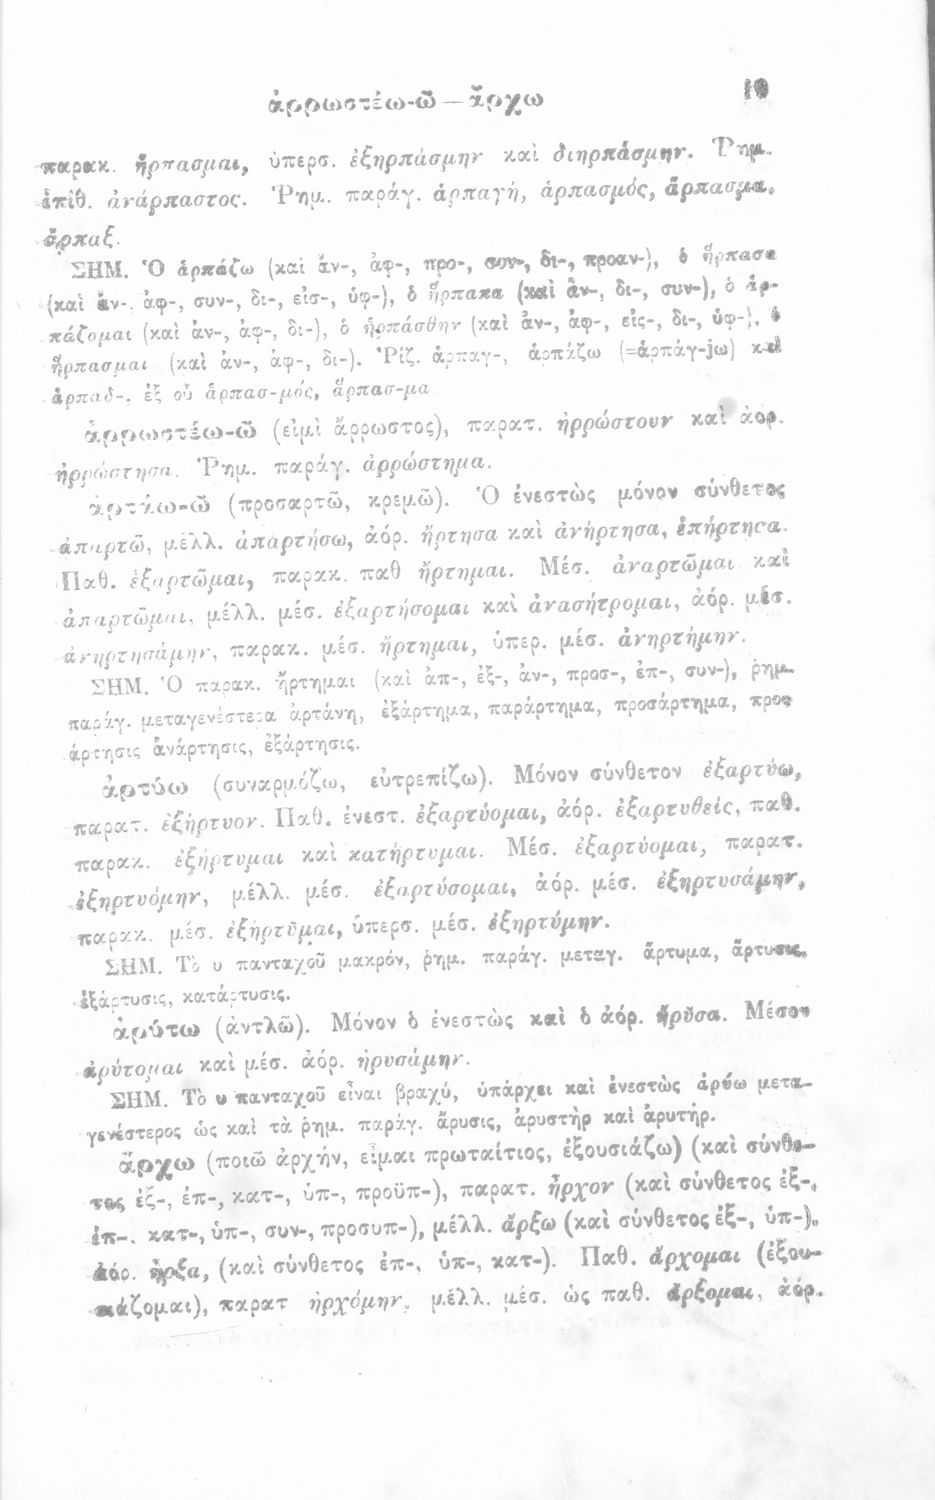 ἀρρωστέω-ῶ — ἄρχω 19
παρακ. ἥρπασμαι, ὑπερσ. ἐξηρπάσμην καὶ διηρπάσμην. Ῥημ.
ἐπιθ. ἀνάρπαστος. Ῥημ. παράγ. ἁρπαγή, ἁρπασμός, ἅρπασμα,
ἅρπαξ.
ΣΗΜ. Ὁ ἁρπάζω (καὶ ἀν-, ἀφ-, προ-, συν-, δι-, προαν-), ὁ ἥρπασα
(καὶ ἀν-, ἀφ-, συν-, δι-, εἰσ-, ὑφ-), ὁ ἥρπακα (καὶ ἀν-, δι-, συν-), ὁ ἁρ-
πάζομαι (καὶ ἀν-, ἀφ-, δι-), ὁ ἡρπάσθην (καὶ ἀν-, ἀφ-, εἰς-, δι-, ὑφ-), ὁ
ἥρπασμαι (καὶ ἀν-, ἀφ-, δι-). Ῥίζ. ἁρπαγ-, ἁρπάζω (=ἁρπάγ-jω) καὶ
ἁρπαδ-, ἐξ οὗ ἁρπασ-μός, ἅρπασ-μα.
ἀρρωστέω-ῶ (εἰμὶ ἄρρωστος), παρατ. ἠρρώστουν καὶ ἀόρ.
ἠρρώστησα. Ῥημ. παράγ. ἀρρώστημα.
ἀρτάω-ῶ (προσαρτῶ, κρεμῶ). Ὁ ἐνεστὼς μόνον σύνθετος
ἀπαρτῶ, μέλλ. ἀπαρτήσω, ἀόρ. ἤρτησα καὶ ἀνήρτησα, ἐπήρτησα.
Παθ. ἐξαρτῶμαι, παρακ. παθ ἤρτημαι. Μέσ. ἀναρτῶμαι καὶ
ἀπαρτῶμαι, μέλλ. μέσ. ἐξαρτήσομαι καὶ ἀνασήτρομαι, ἀόρ. μέσ.
ἀνηρτησάμην, παρακ. μέσ. ἤρτημαι, ὑπερ. μέσ. ἀνηρτήμην.
ΣΗΜ. Ὁ παρακ. ἤρτημαι (καὶ ἀπ-, ἐξ-, ἀν-, προσ-, ἐπ-, συν-), ῥημ.
παράγ. μεταγενέστερα ἀρτάνη, ἐξάρτημα, παράρτημα, προσάρτημα, προσ
άρτησις ἀνάρτησις, ἐξάρτησις.
ἀρτύω (συναρμόζω, εὐτρεπίζω). Μόνον σύνθετον ἐξαρτύω,
παρατ. ἐξήρτυον. Παθ. ἐνεστ. ἐξαρτύομαι, ἀόρ. ἐξαρτυθείς, παθ.
παρακ. ἐξήρτυμαι καὶ κατήρτυμαι. Μέσ. ἐξαρτύομαι, παρατ.
ἐξηρτυόμην, μέλλ. μέσ. ἐξαρτύσομαι, ἀόρ. μέσ. ἐξηρτυσάμην,
παρακ. μέσ. ἐξήρτῡμαι, ὑπερσ. μέσ. ἐξηρτύμην.
ΣΗΜ. Τὸ υ πανταχοῦ μακρόν, ῥημ. παράγ. μεταγ. ἄρτυμα, ἄρτυσις,
ἐξάρτυσις, κατάρτυσις.
ἀρύτω (ἀντλῶ). Μόνον ὁ ἐνεστὼς καὶ ὁ ἀόρ. ἤρῠσα. Μέσον
ἀρύτομαι καὶ μέσ. ἀόρ. ἠρυσάμην.
ΣΗΜ. Τὸ υ πανταχοῦ εἶναι βραχύ, ὑπάρχει καὶ ἐνεστὼς ἀρύω μετα-
γενέστερος ὡς καὶ τὰ ῥημ. παράγ. ἄρυσις, ἀρυστὴρ καὶ ἀρυτήρ.
ἄρχω (ποιῶ ἀρχήν, εἶμαι πρωταίτιος, ἐξουσιάζω) (καὶ σύνθε-
τος ἐξ-, ἐπ-, κατ-, ὑπ-, προϋπ-), παρατ. ἦρχον (καὶ σύνθετος ἐξ-,
ἐπ-, κατ-, ὑπ-, συν-, προσυπ-), μέλλ. ἄρξω (καὶ σύνθετος ἐξ-, ὑπ-),
ἀόρ. ἦρξα, (καὶ σύνθετος ἐπ-, ὑπ-, κατ-). Παθ. ἄρχομαι (ἐξου-
σιάζομαι), παρατ ἠρχόμην, μέλλ. μέσ. ὡς παθ. ἄρξομαι, ἀόρ.